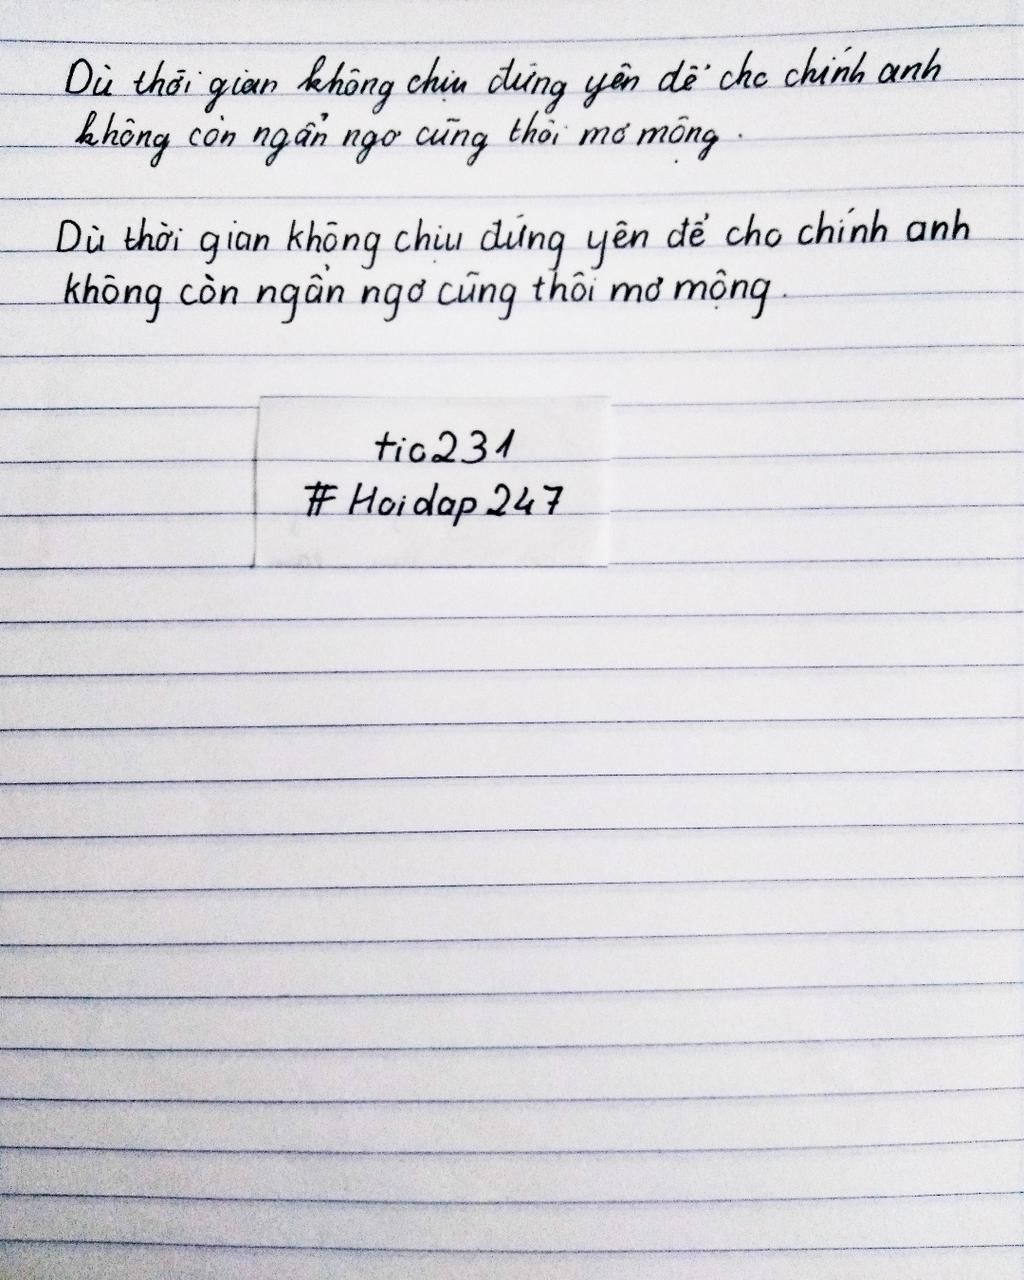 Dù thời gian không chịu đứng yên để cho chính anh
không còn ngẩn ngơ cũng thôi mơ mộng.
Dù thời gian không chịu đứng yên để cho chính anh
không còn ngẩn ngơ cũng thôi mơ mộng.
tic231
# Hoidap 247